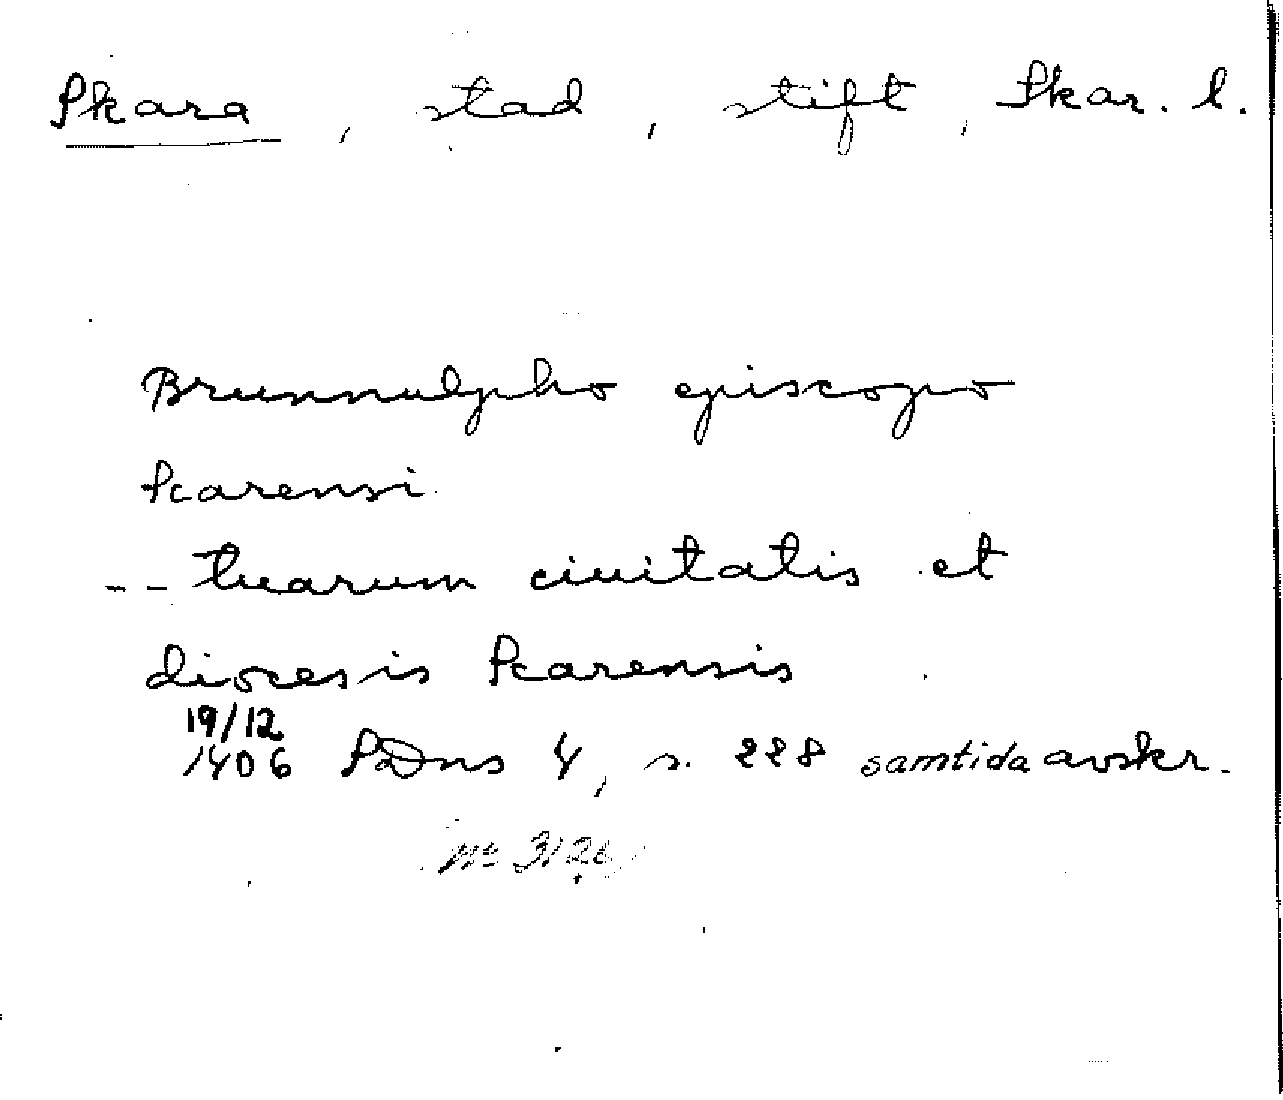 Skara, stad, stift, Skar. l.
Brunnulpho episcopo
Scarensi
-- tuarum ciuitatis et
diocesis Scarensis
19/12
1406 SDns 4, s. 228 samtida avskr.
no 3126